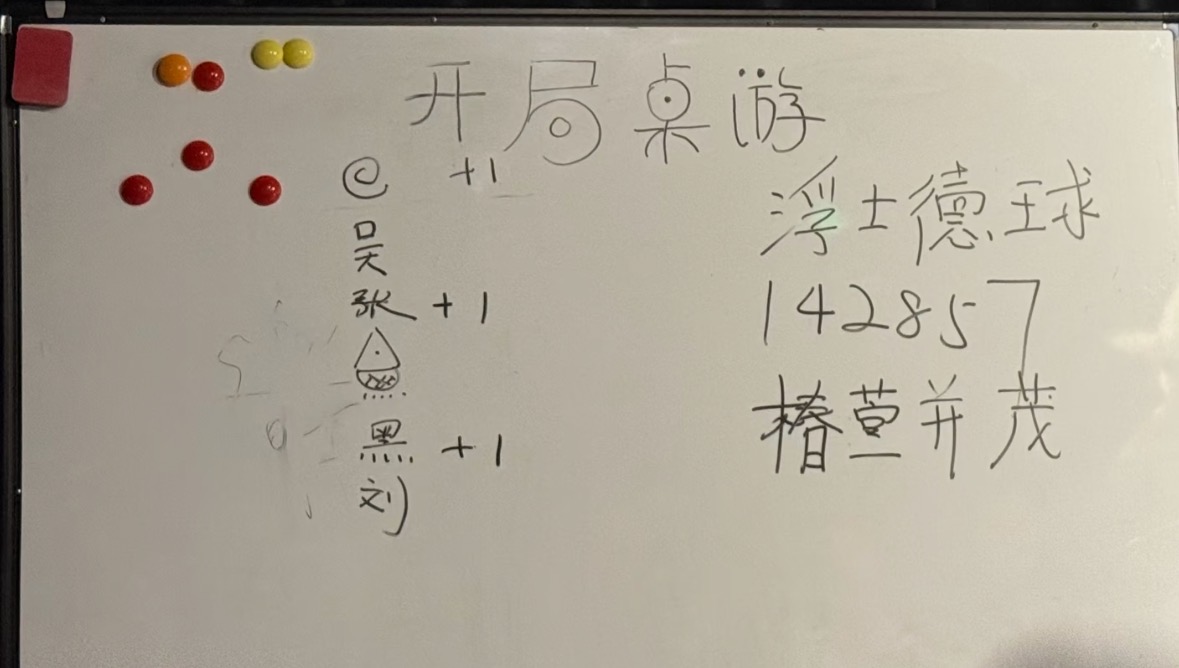 开局桌游
@ +1
吴
张 +1
黑 +1
刘
浮士德球
142857
椿萱并茂